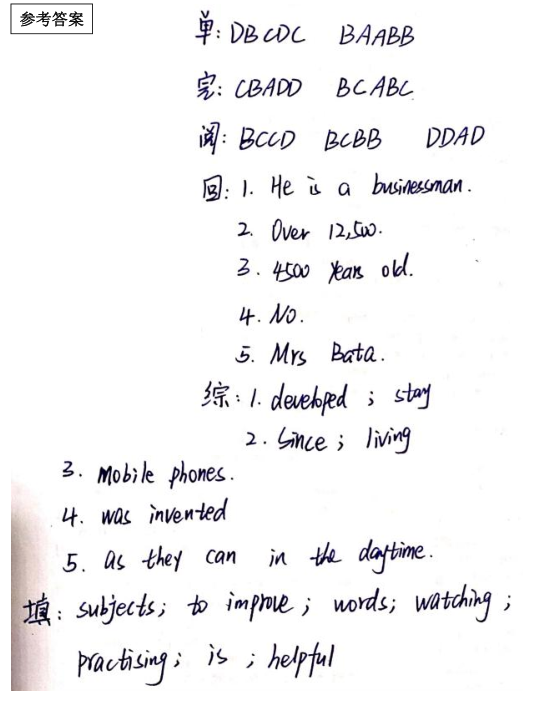 参考答案
单: DBCDC BAABB
完: CBADD BCABC
阅: BCCD BCBB DDAD
回: 1. He is a businessman.
2. Over 12,500.
3. 4500 years old.
4. No.
5. Mrs Bata.
综: 1. developed ; stay
2. Since ; living
3. Mobile phones.
4. was invented
5. as they can in the daytime.
填: subjects; to improve ; words; watching ;
practising; is ; helpful